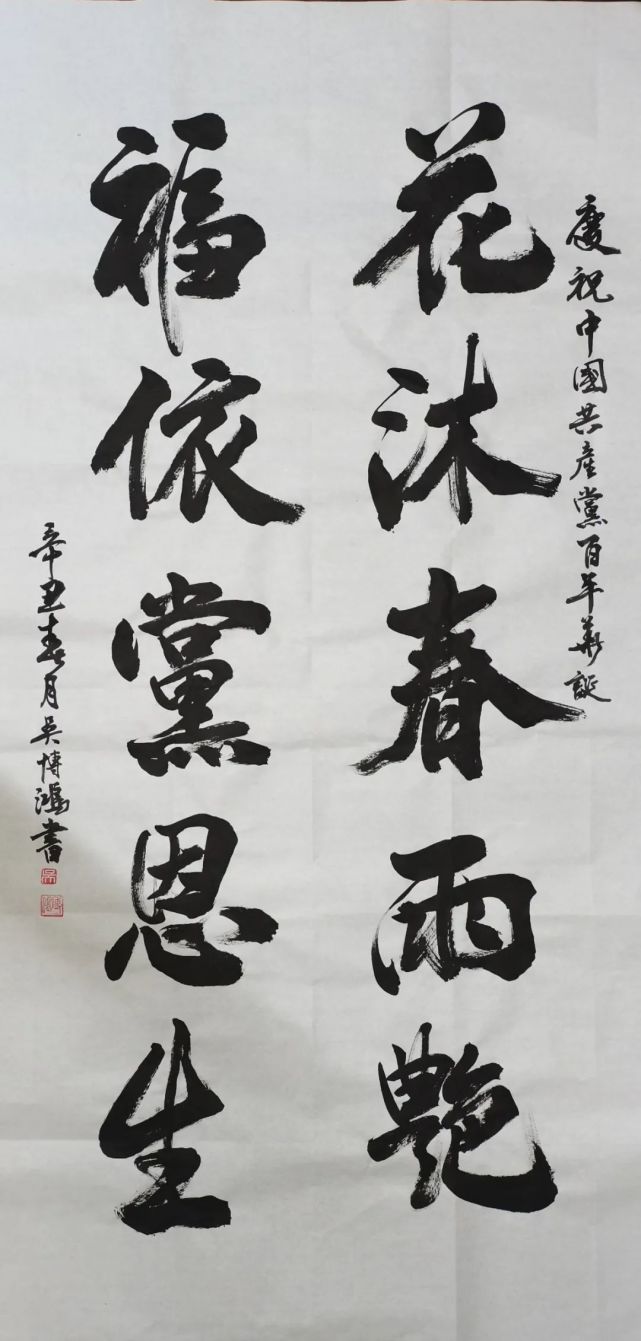 慶祝中國共產黨百年華誕
花沐春雨艷
福依黨恩生
辛丑春月吳博鴻書